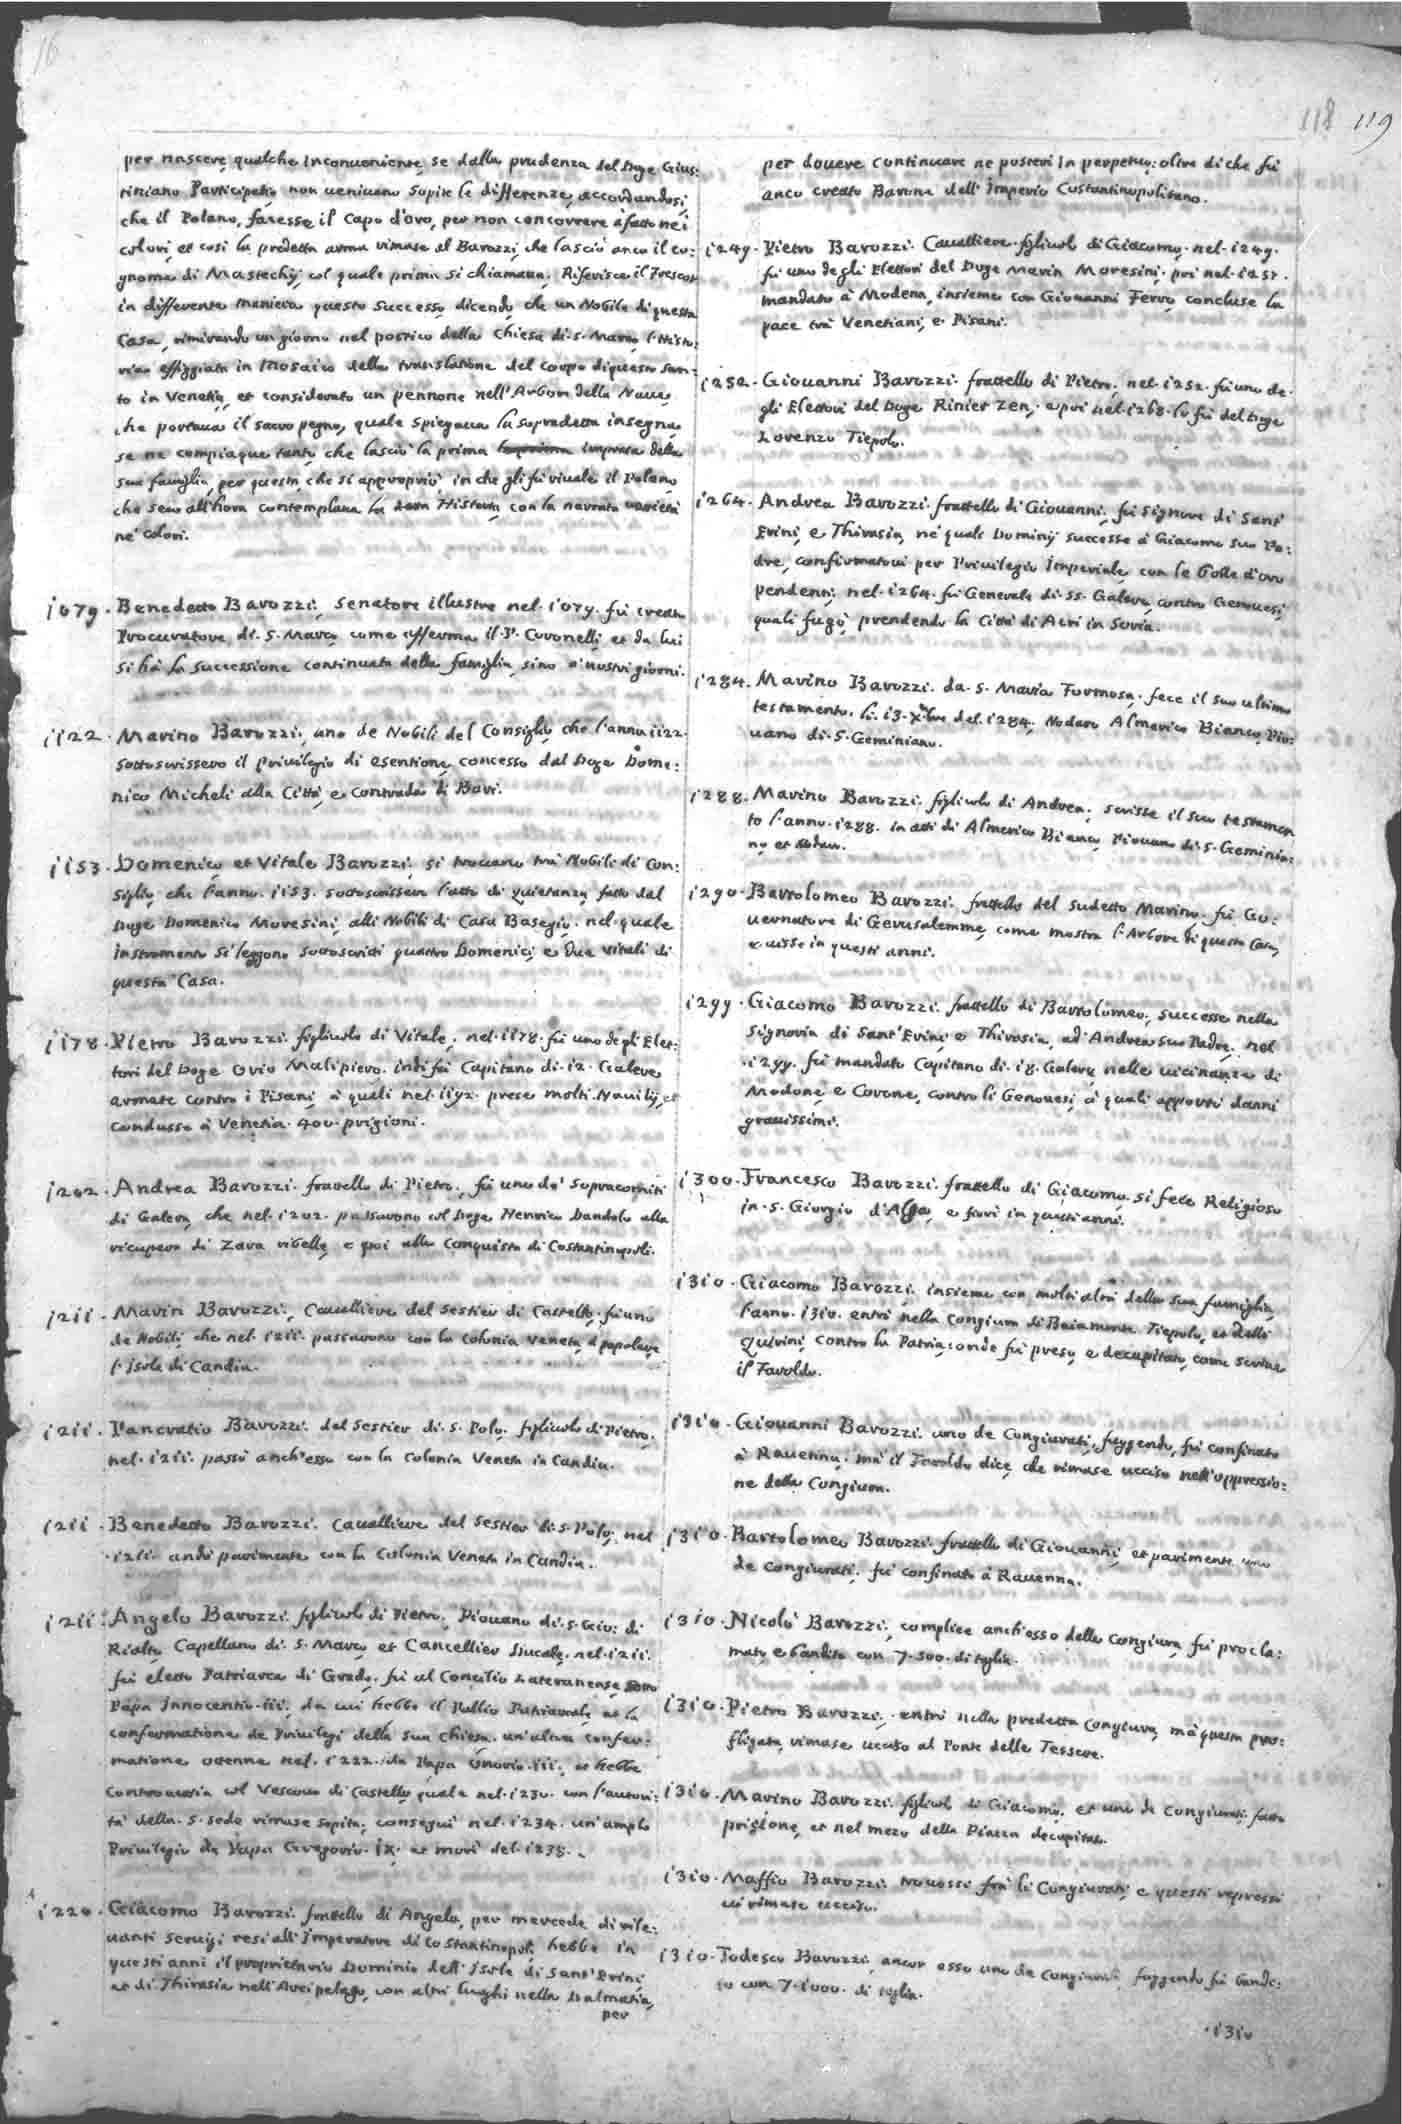 16
118 119
per nascere qualche inconueniente, se dalla prudenza del Doge Gius:
tiniano Participatio non ueniuano sopite le differenze, accordandosi,
che il Polano, facesse il Capo d'oro, per non concorrere affatto nei
colori, et cosi la predetta arma rimase al Barozzi, che lasciò anco il co:
gnome di Mastechij, col quale prima si chiamaua. Riferisce il Frescot
in differente maniera questo successo, dicendo, che un Nobile di questa
Casa, rimirando un giorno nel portico della Chiesa di S. Marco l'Histo:
ria effiggiata in Mosaico della translatione del Corpo di questo San:
to in Venetia, et considerato un pennone nell'Arbore della Naue,
che portaua il sacro pegno, quale spiegaua la sopradetta insegna,
se ne compiaque tanto, che lasciò la prima impresa della
sua famiglia, per questa, che si appropriò in che gli fù riuale il Polano
che seco all'hora contemplaua la Historia, con la narrata uarietà
ne' colori.
1079. Benedetto Barozzi, Senatore illustre nel. 1079. fù creato
Procuratore di S. Marco, come afferma il P. Coronelli, et da lui
si hà la successione continuata della famiglia, sino a' nostri giorni.
1122. Marino Barozzi, uno de Nobili del Consiglio, che l'anno 1122.
sottoscrissero il Priuilegio di esentione, concesso dal Doge Dome:
nico Micheli alla Città, e Contrada di Bari.
1153. Domenico et Vitale Barozzi, si trouano trà Nobili di Con:
siglio, che l'anno. 1153. sottoscrissero l'atto di quietanza, fatto dal
Doge Domenico Moresini, alli Nobili di Casa Basegio. nel quale
instromento si leggono sottoscritti quattro Domenici, e due Vitali di
questa Casa.
1178. Pietro Barozzi figliuolo di Vitale. nel. 1178. fù uno degli Elet:
tori del Doge Orio Malipiero. indi fù Capitano di. 12. Galere
armate contro i Pisani, a' quali nel. 1192. prese molti Nauilij, et
condusse à Venetia. 400. prigioni.
1202. Andrea Barozzi. fratello di Pietro, fù uno de' Sopracomiti
di Galera, che nel. 1202. passarono col Doge Henrico Dandolo alla
ricupera di Zara ribelle, e poi alla Conquista di Costantinopoli.
1211. Marin Barozzi, Caualliere del Sestier di Castello. fù uno
de Nobili, che nel. 1211. passarono con la Colonia Veneta, à popolare
l'Isola di Candia.
1211. Pancratio Barozzi. del Sestier di. S. Polo. figliuolo di Pietro.
nel. 1211. passò anch'esso con la Colonia Veneta in Candia.
1211. Benedetto Barozzi. Caualliere del Sestier di. S. Polo. nel
.1211. andò parimente con la Colonia Veneta in Candia.
1211. Angelo Barozzi. figliuolo di Pietro. Piouano di. S. Gio: di
Rialto, Capellano di. S. Marco, et Cancellier Ducale. nel. 1211.
fù eletto Patriarca di Grado. fù al Concilio Lateranense, sotto
Papa Innocentio. III. da cui hebbe il Pallio Patriarcale, et la
confermatione de Priuilegi della sua Chiesa. un'altra confer:
matione ottenne nel. 1222. da Papa Onorio. III. et hebbe
controuersia col Vescouo di Castello, quale nel. 1230. con l'autori:
tà della. S. Sede rimase sopita. conseguì nel. 1234. un'amplo
Priuilegio da Papa Gregorio. IX. et morì del. 1238.
1220. Giacomo Barozzi. fratello di Angelo, per mercede di rile:
uanti seruigi resi all'Imperatore di Costantinopoli, hebbe in
questi anni il proprietario Dominio dell'Isola di Sant'Erini,
et di Thirasia nell'Arcipelago, con altri luoghi nella Dalmatia,
per
per douere continuare ne posteri in perpetuo: oltre di che fù
anco creato Barone dell'Imperio Costantinopolitano.
1249. Pietro Barozzi. Caualliere. figliuolo di Giacomo. nel. 1249.
fù uno degli Elettori del Doge Marin Moresini; poi nel. 1257.
mandato à Modena, insieme con Giouanni Ferro, concluse la
pace trà Venetiani, e Pisani.
1252. Giouanni Barozzi. frattello di Pietro. nel. 1252. fù uno de.
gli Elettori del Doge Rinier Zen, e poi nel. 1268. lo fù del Doge
Lorenzo Tiepolo.
1264. Andrea Barozzi. frattello di Giouanni, fù Signore di Sant'
Erini, e Thirasia, ne' quali Dominij successe à Giacomo suo Pa:
dre, confirmatoui per Priuilegio Imperiale, con le Bolle d'oro
pendenti. nel. 1264. fù Generale di. 55. Galere, contro Genouesi,
quali fugò, prendendo la Città di Acri in Soria.
1284. Marino Barozzi. da. S. Maria Formosa. fece il suo ultimo
testamento. li. 13. Xbre del. 1284. Nodaro Almerico Bianco, Pio:
uano di. S. Geminiano.
1288. Marino Barozzi. figliuolo di Andrea, scrisse il suo testamen
to l'anno. 1288. in atti di Almerico Bianco Piouano di. S. Geminia:
no et Nodaro.
1290. Bartolomeo Barozzi. frattello del sudetto Marino. fù Go:
uernatore di Gerusalemme, come mostra l'Arbore di questa Casa,
e uisse in questi anni.
1299. Giacomo Barozzi. frattello di Bartolomeo, successe nella
Signoria di Sant'Erini e Thirasia, ad Andrea suo Padre. nel
.1299. fù mandato Capitano di. 18. Galere nelle uicinanze di
Modone e Corone, contro li Genouesi, à quali apportò danni
grauissimi.
1300. Francesco Barozzi. frattello di Giacomo, si fece Religioso
in. S. Giorgio d'Alga, e fiorì in questi anni.
1310. Giacomo Barozzi. insieme con molti altri della sua famiglia,
l'anno. 1310. entrò nella Congiura di Baiamonte Tiepolo, et delli
Quirini, contro la Patria; onde fù preso, e decapitato, come scriue
il Faroldo.
1310. Giouanni Barozzi. uno de Congiurati, fuggendo, fù confinato
à Rauenna. mà il Faroldo dice, che rimase ucciso nell'oppressio:
ne della Congiura.
1310. Bartolomeo Barozzi. frattello di Giouanni, et parimente uno
de Congiurati, fù confinato à Rauenna.
1310. Nicolò Barozzi, complice anch'esso della Congiura, fù procla:
mato, e bandito con 7. 500. di taglia.
1310. Pietro Barozzi, entrò nella predetta Congiura, mà questa pro:
fligata, rimase ucciso al Ponte delle Tessere.
1310. Marino Barozzi. figliuolo di Giacomo, et uno de Congiurati. fatto
prigione, et nel mezo della Piazza decapitato.
1310. Maffio Barozzi. trouossi frà li Congiurati, e questi repressi
ui rimase ucciso.
1310. Todesco Barozzi, ancor esso uno de Congiurati, fuggendo fù bandi:
to con 7. 1000. di taglia.
.1310